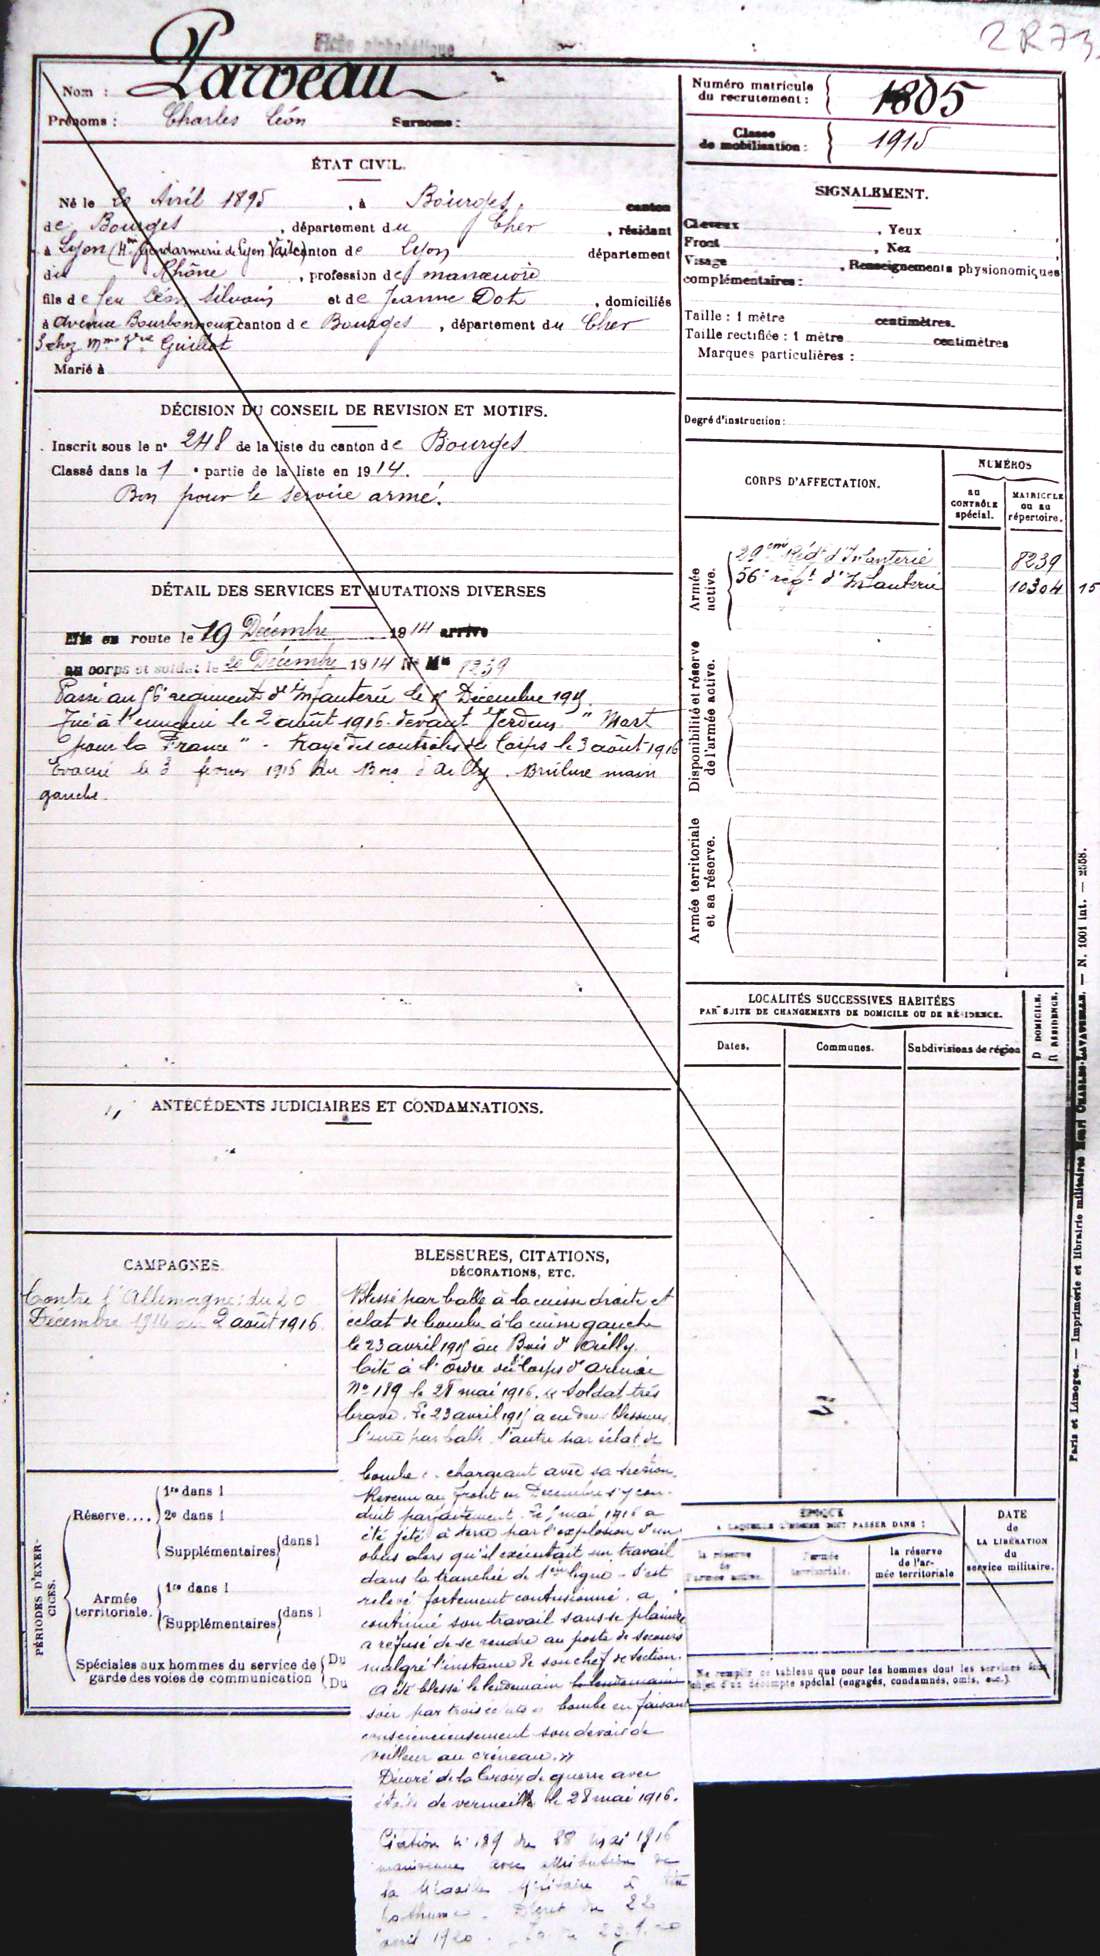 2 R 73
Fiche alphabétique
Nom : Parveau
Prénoms : Charles Léon Surnoms :
Numéro matricule du recrutement : 1805
Classe de mobilisation : 1915
ÉTAT CIVIL.
Né le 20 Avril 1895, à Bourges, canton
de Bourges, département du Cher, résidant
à Lyon (Hm Gendarmerie de Lyon Vaise) canton de Lyon département
du Rhône, profession de manœuvre
fils de feu Léon Silvain et de Jeanne Dot, domiciliés
à Avenue Bourbonnoux canton de Bourges, département du Cher
3 chez Mme Vve Guillot
Marié à
SIGNALEMENT.
Cheveux , Yeux
Front , Nez
Visage , Renseignements physionomiques
complémentaires :
Taille : 1 mètre centimètres.
Taille rectifiée : 1 mètre centimètres
Marques particulières :
Degré d'instruction :
DÉCISION DU CONSEIL DE REVISION ET MOTIFS.
Inscrit sous le n° 248 de la liste du canton de Bourges
Classé dans la 1 e partie de la liste en 1914.
Bon pour le service armé.
CORPS D'AFFECTATION.
NUMÉROS
au CONTRÔLE spécial.
MATRICULE ou au répertoire.
Armée active.
29eme Régt d'Infanterie 8239
56e régt d'Infanterie 10304 15
Disponibilité et réserve de l'armée active.
Armée territoriale et sa réserve.
DÉTAIL DES SERVICES ET MUTATIONS DIVERSES
Mis en route le 19 Décembre 1914 arrivé
au corps et soldat le 20 Décembre 1914 N° Mle 8239
Passé au 56e régiment d'Infanterie le Décembre 1915
Tué à l'ennemi le 2 août 1916 devant Verdun " Mort
pour la France " - Rayé des contrôles du Corps le 3 août 1916
Evacué le 3 1915 du Bois d'Ailly. Brûlure main
gauche.
LOCALITÉS SUCCESSIVES HABITÉES
PAR SUITE DE CHANGEMENTS DE DOMICILE OU DE RÉSIDENCE.
Dates. Communes. Subdivisions de région
D DOMICILE. R RÉSIDENCE.
ANTÉCÉDENTS JUDICIAIRES ET CONDAMNATIONS.
CAMPAGNES.
Contre l'Allemagne : du 20
Décembre 1914 au 2 août 1916.
BLESSURES, CITATIONS,
DÉCORATIONS, ETC.
Blessé par balle à la cuisse droite et
éclat de bombe à la cuisse gauche
le 23 avril 1915 au Bois d'Ailly.
Cité à l'ordre du Corps d'armée
N° 189 le 28 mai 1916. « Soldat très
brave. Le 23 avril 1915 a eu deux blessures
l'une par balle l'autre par éclat de
bombe en chargeant avec sa section.
Revenu au front en Décembre s'y con-
duit parfaitement. Le mai 1916 a
été jeté à terre par l'explosion d'un
obus alors qu'il exécutait un travail
dans la tranchée de 1ere ligne - S'est
relevé fortement contusionné, a
continué son travail sans se plaindre
a refusé de se rendre au poste de secours
malgré l'instance de son chef de section.
A été blessé le lendemain le lendemain
soir par trois éclats de bombe en faisant
consciencieusement son devoir de
veilleur au créneau. »
Décoré de la Croix de guerre avec
étoile de vermeil le 28 mai 1916.
Citation N° 189 du 28 mai 1916
maintenue avec attribution de
la Médaille Militaire à titre
posthume. Décret du 22
avril 1920.
PÉRIODES D'EXERCICES.
Réserve....
1re dans l
2e dans l
Supplémentaires dans l
Armée territoriale.
1re dans l
Supplémentaires dans l
Spéciales aux hommes du service de garde des voies de communication
Du
Du
ÉPOQUE
A LAQUELLE L'HOMME DOIT PASSER DANS :
la réserve de l'armée active.
l'armée territoriale.
la réserve de l'armée territoriale
DATE de LA LIBÉRATION du service militaire.
Ne remplir ce tableau que pour les hommes dont les services font
l'objet d'un décompte spécial (engagés, condamnés, omis, etc.).
Paris et Limoges. — Imprimerie et librairie militaires Henri CHARLES-LAVAUZELLE. — N. 1001 int. — 2558.